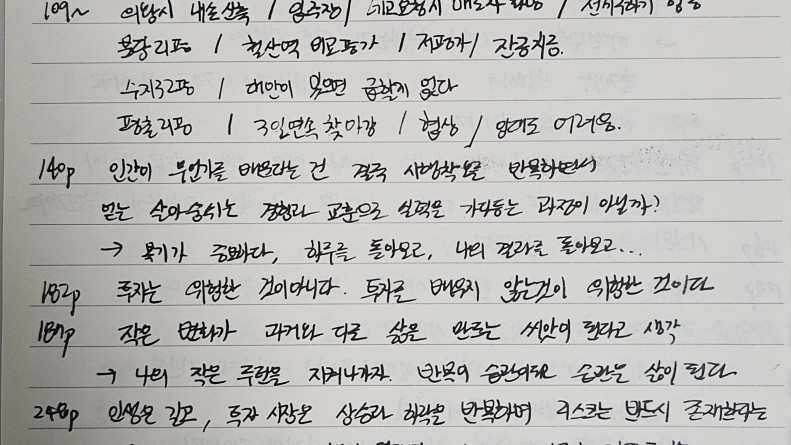 109~ 의왕시 내손신축 / 입주장 / 매도자 / 전세구하기
용당리평 / 철산역 비교평가 / 저평가 / 잔금지름.
수지32평 / 대안이 있으면 급할게 없다
평촌리평 / 3일연속 찾아감 / 협상 / 임대도 어려움.
140p 인간이 무언가를 배운다는 건 결국 시행착오를 반복하면서
얻는 경험과 교훈으로 실력을 가다듬는 과정이 아닐까?
→ 복기가 중요하다, 하루를 돌아보고, 나의 결과를 돌아보고...
182p 투자는 위험한 것이 아니다. 투자를 배우지 않는것이 위험한 것이다
187p 작은 변화가 과거와 다른 삶을 만드는 씨앗이 된다고 생각
→ 나의 작은 루틴을 지켜나가자. 반복이 습관이되고 습관은 삶이 된다
248p 인생은 길고, 투자 시장은 상승과 하락을 반복하며 리스크는 반드시 존재한다는